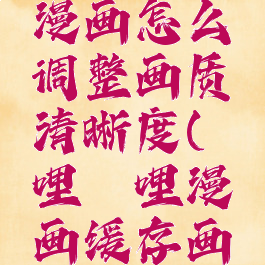 漫画怎么
调整画质
清晰度(
哩 哩漫
画缓存画